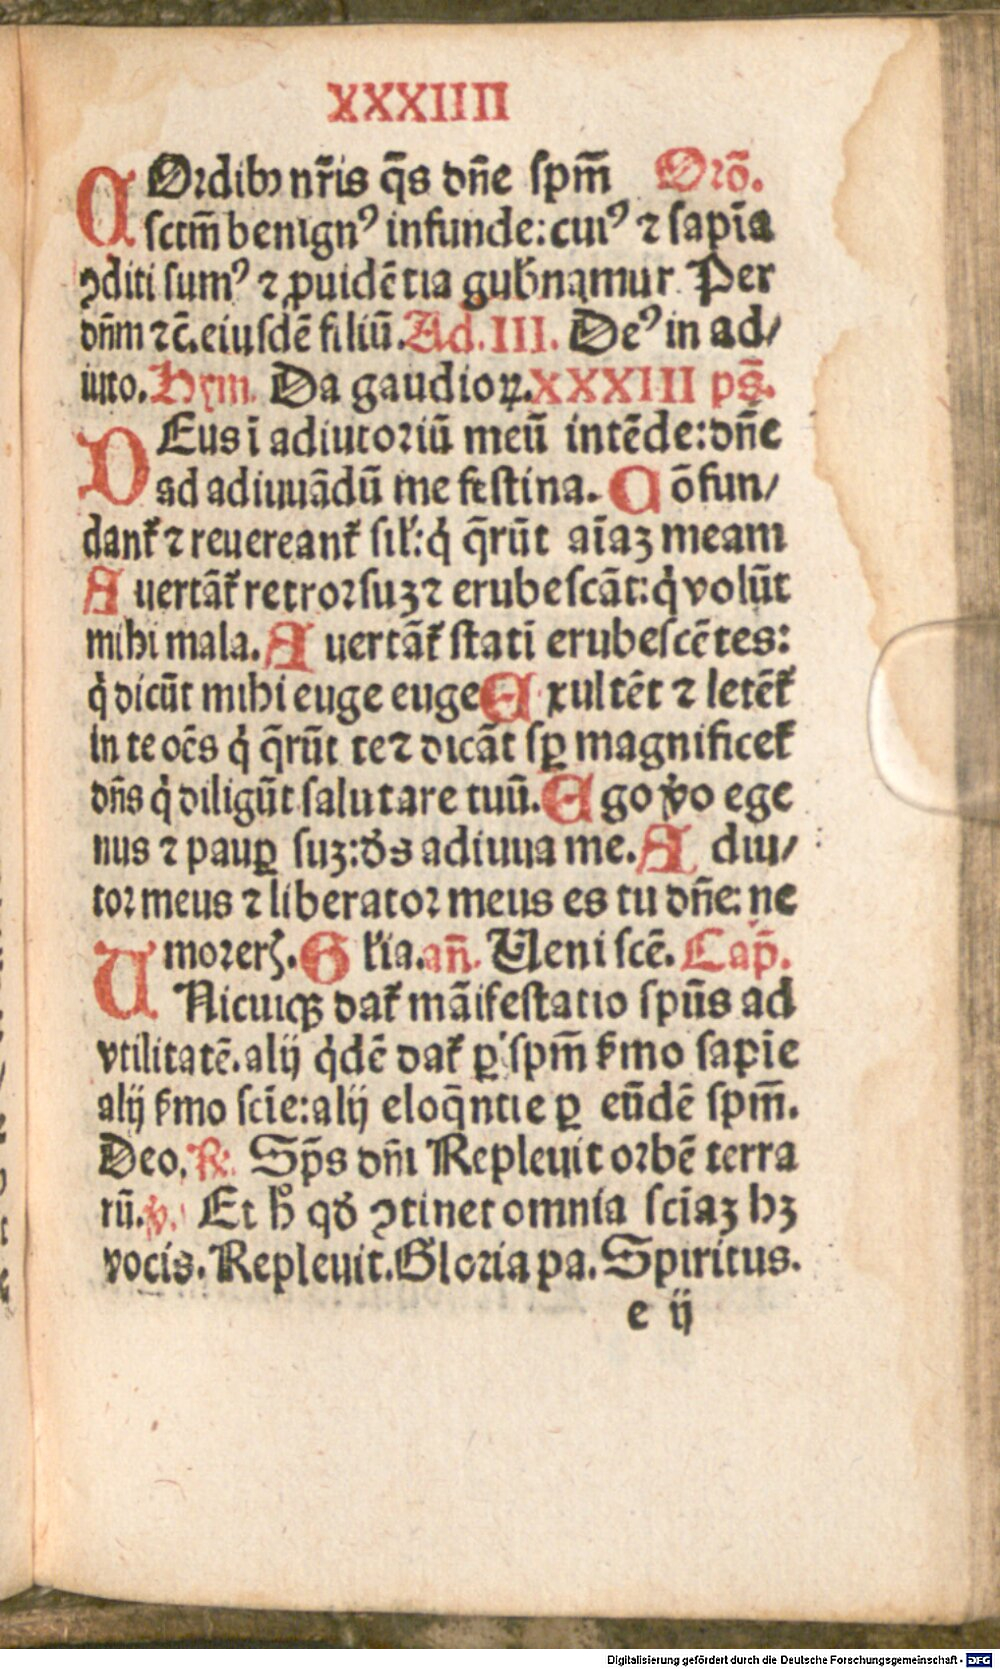 XXXIIII
COrdibꝰ nr̃is q̃s dñe sp̃m Orõ.
sctm̃ benignꝰ infunde: cuiꝰ ⁊ sapĩa
ꝯditi sumꝰ ⁊ ꝓuidẽtia gub̃namur Per
dñm ⁊c̃. eiusdẽ filiũ. Ad. III. Deꝰ in ad/
iuto. Hym. Da gaudioꝝ. XXXIII ps̃.
DEus ĩ adiutoriũ meũ intẽde: dñe
ad adiuuãdũ me festina. Cõfun/
dant᷑ ⁊ reuereant᷑ sil᷑: q̇ q̃rũt aĩaꝫ meam
Auertãt᷑ retrorsuꝫ ⁊ erubescãt: q̇ volũt
mihi mala. Auertãt᷑ statĩ erubescẽtes:
q̇ dicũt mihi euge euge Exultẽt ⁊ letẽt᷑
in te oẽs q̇ q̃rũt te ⁊ dicãt sꝑ magnificet᷑
dñs q̇ diligũt salutare tuũ. Ego ṽo ege
nus ⁊ pauꝑ suꝫ: ds̃ adiuua me. Adiu/
tor meus ⁊ liberator meus es tu dñe: ne
morerꝭ. Gl᷑ia. añ. Ueni scẽ. Cap̃.
UNicuiqꝫ dat᷑ mãifestatio spũs ad
vtilitatẽ. alij q̇dẽ dat᷑ ꝑ sp̃m s̃mo sapĩe
alij s̃mo scĩe: alij eloq̃ntie ꝑ eũdẽ sp̃m.
Deo. ℟. Sp̃s dñi Repleuit orbẽ terra
rũ. ℣. Et h̾ qd̾ ꝯtinet omnia scĩaꝫ hꝫ
vocis. Repleuit. Gloria pa. Spiritus.
e ij
Digitalisierung gefördert durch die Deutsche Forschungsgemeinschaft - DFG